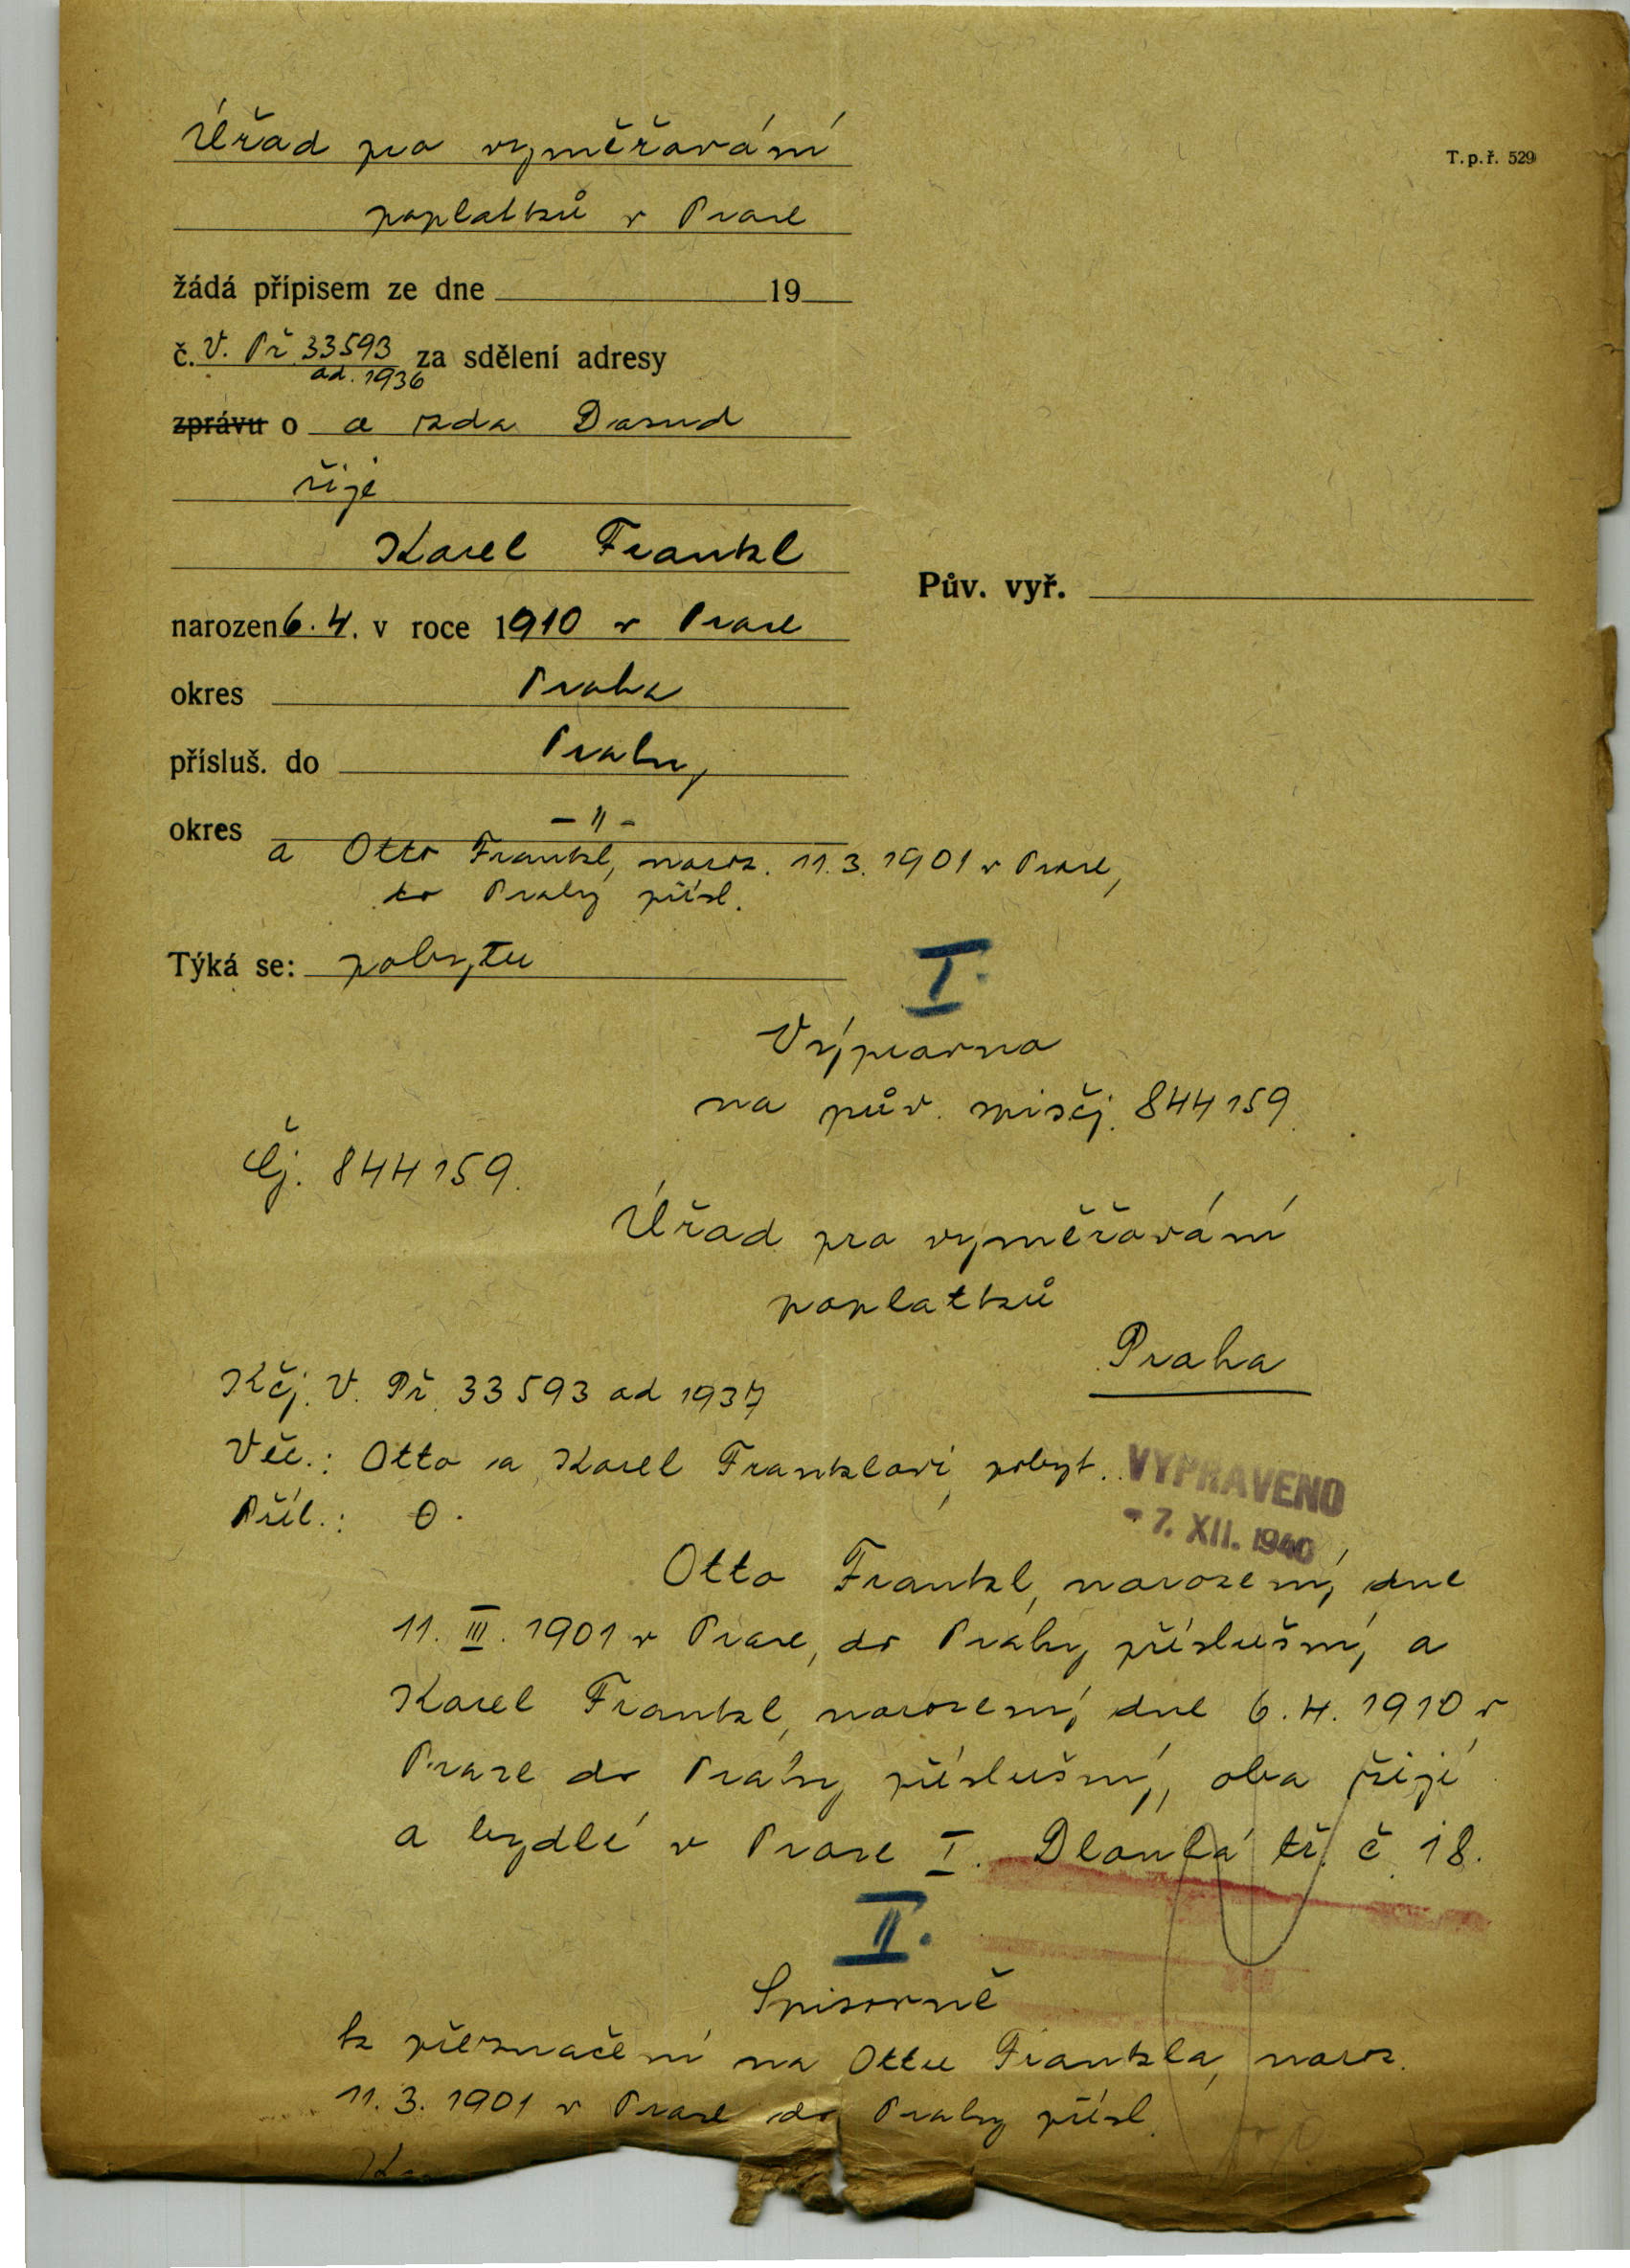 Úřad pro vyměřování
T.p.ř. 529
poplatků v Praze
žádá přípisem ze dne 19
č. V. Př 33593 za sdělení adresy
ad. 1936
zprávu o a zda Dosud
žije
Karel Frankl
Pův. vyř.
narozen 6. 4. v roce 1910 v Praze
okres Praha
přísluš. do Prahy,
okres – " –
a Otto Frankl, naroz. 11. 3. 1901 v Praze,
do Prahy přísl.
Týká se: pobytu
I.
Výpravna
na pův. spisčj. 844159.
Čj. 844159.
Úřad pro vyměřování
poplatků
Praha
Kčj. V. Př. 33593 ad 1937
Věc.: Otto a Karel Franklovi, pobyt.
VYPRAVENO
- 7. XII. 1940
Příl.: 0.
Otto Frankl, narozený dne
11. III. 1901 v Praze, do Prahy příslušný a
Karel Frankl, narozený dne 6. 4. 1910 v
Praze do Prahy příslušný, oba žijí
a bydlí v Praze I. Dlouhá tř. č 18.
II.
Spisovně
k přeznačení na Ottu Frankla, naroz.
11. 3. 1901 v Praze do Prahy přísl.